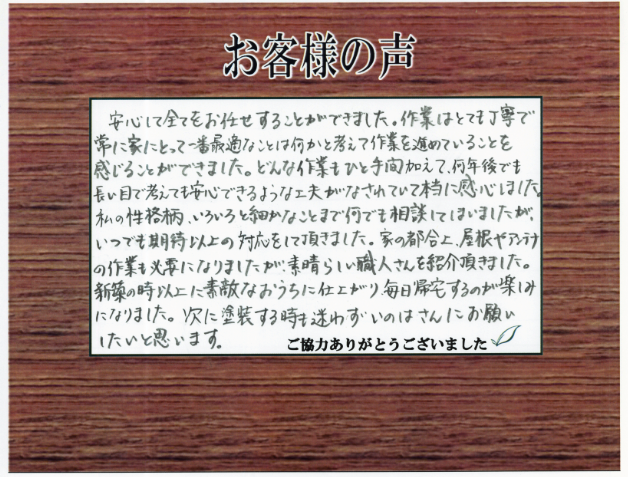 お客様の声
安心して全てをお任せすることができました。作業はとても丁寧で
常に家にとって一番最適なことは何かと考えて作業を進めていることを
感じることができました。どんな作業もひと手間加えて、何年後でも
長い目で考えても安心できるような工夫がなされていて本当に感心しました。
私の性格柄、いろいろと細かなことまで何でも相談してしまいましたが、
いつでも期待以上の対応をして頂きました。家の都合上、屋根やアンテナ
の作業も必要になりましたが、素晴らしい職人さんを紹介頂きました。
新築の時以上に素敵なおうちに仕上がり、毎日帰宅するのが楽しみ
になりました。次に塗装する時も迷わずいのはさんにお願い
したいと思います。
ご協力ありがとうございました